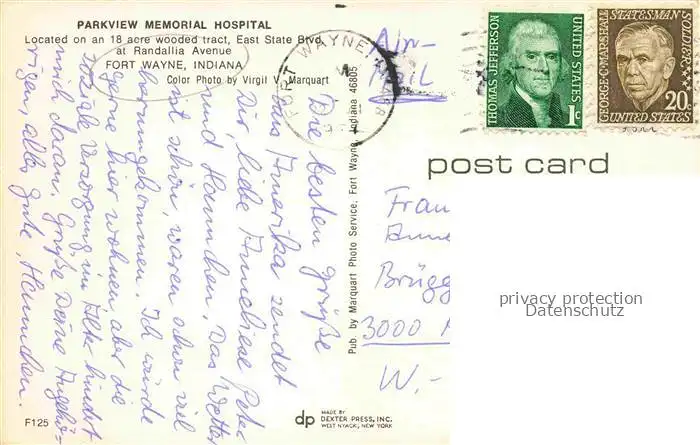 PARKVIEW MEMORIAL HOSPITAL
Located on an 18 acre wooded tract, East State Blvd.
at Randallia Avenue
FORT WAYNE, INDIANA
Color Photo by Virgil V. Marquart
Die besten Grüße
aus Amerika sendet
Dir, liebe Anneliese Peter
und Hannchen. Das Wetter
ist schön, waren schon viel
herumgekommen. Ich würde
gerne hier wohnen aber die
soziale Versorgung im Alter hindert
mich daran. Grüße Deine Angehö-
rigen, alles Gute, Hannchen.
F125
Pub. by Marquart Photo Service, Fort Wayne, Indiana 46805
MADE BY
dp DEXTER PRESS, INC.
WEST NYACK, NEW YORK
Air-
Mail
FORT WAYNE
THOMAS JEFFERSON
UNITED STATES
1c
GEORGE C. MARSHALL
STATESMAN
SOLDIER
20c
UNITED STATES
post card
Frau
Anne
Brügg
3000
W.-
privacy protection
Datenschutz